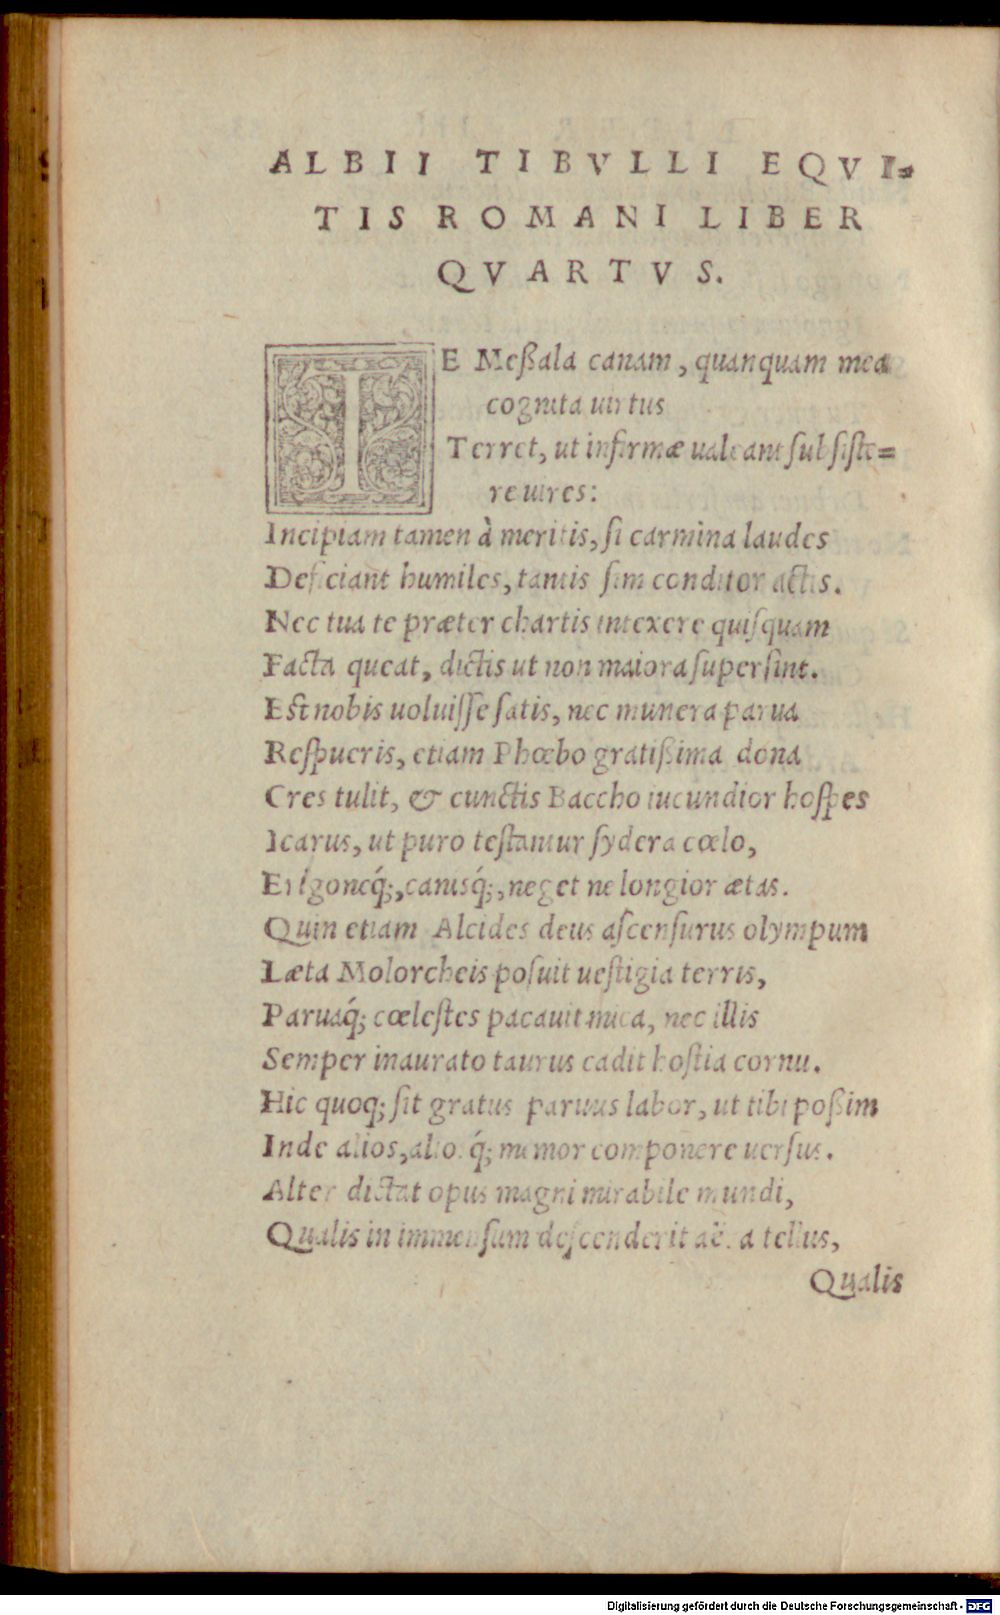 ALBII TIBVLLI EQVI-
TIS ROMANI LIBER
QVARTVS.
TE Meßala canam, quanquam mea
cognita uirtus
Terret, ut infirmæ ualeant ſubſiſte=
re uires:
Incipiam tamen à meritis, ſi carmina laudes
Deficiant humiles, tantis ſim conditor actis.
Nec tua te præter chartis intexere quiſquam
Facta queat, dictis ut non maiora ſuperſint.
Eſt nobis uoluiſſe ſatis, nec munera parua
Reſpueris, etiam Phœbo gratißima dona
Cres tulit, & cunctis Baccho iucundior hoſpes
Icarus, ut puro teſtantur ſydera cœlo,
Erigoneq́;, canisq́;, neget ne longior ætas.
Quin etiam Alcides deus aſcenſurus olympum
Læta Molorcheis poſuit ueſtigia terris,
Paruaq́; cœleſtes pacauit mica, nec illis
Semper inaurato taurus cadit hoſtia cornu.
Hic quoq; ſit gratus paruus labor, ut tibi poßim
Inde alios, alioſq́; memor componere uerſus.
Alter dictat opus magni mirabile mundi,
Qualis in immenſum deſcenderit aëra tellus,
Qualis
Digitalisierung gefördert durch die Deutsche Forschungsgemeinschaft - DFG